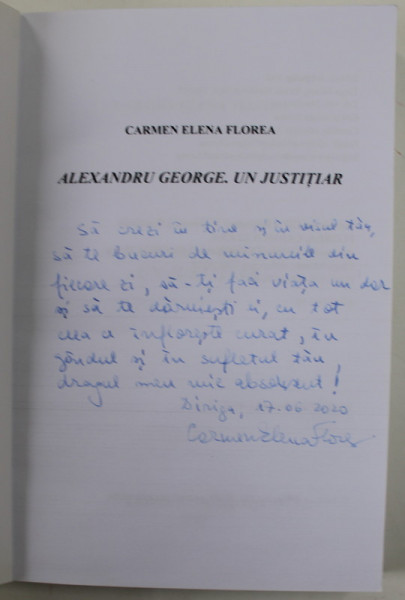 CARMEN ELENA FLOREA
ALEXANDRU GEORGE. UN JUSTIȚIAR
Să crezi în tine și în visul tău,
să te bucuri de minunile din
fiecare zi, să-ți faci viața un dar
și să te dăruiești ei, cu tot
ceea ce înflorește curat, în
gândul și în sufletul tău,
dragul meu mic absolvent!
Diriga, 17.06.2020
Carmen Elena Florea